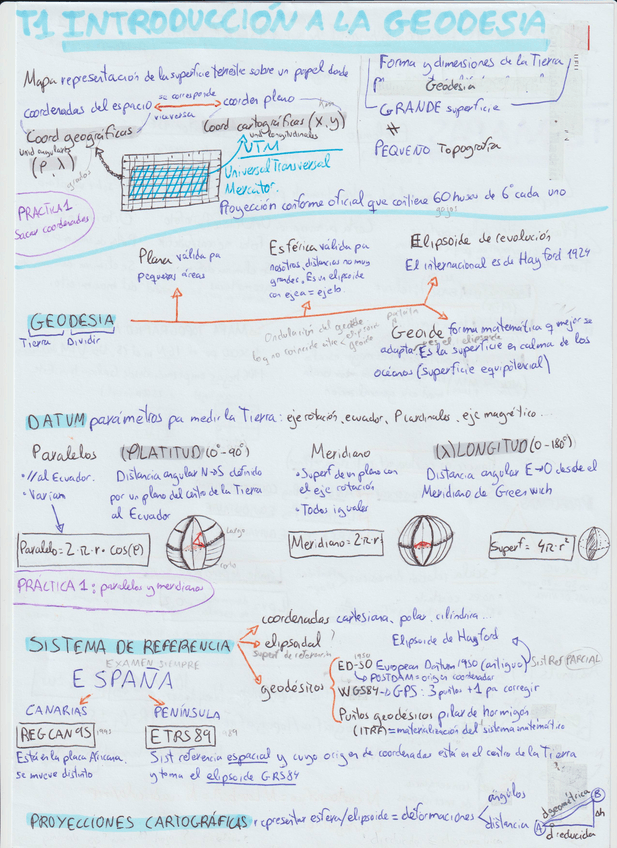 T1 INTRODUCCIÓN A LA GEODESIA
Mapa representación de la superficie terrestre sobre un papel donde
coordenadas del espacio se corresponde viceversa coorden plano
Coord geográficas
unid angulares
(ρ, λ)
grados
Coord cartográficas (X, y)
unid longitudinales
UTM
Universal Transversal
Mercator.
Proyección conforme oficial que contiene 60 husos de 6° cada uno
gajos
Forma y dimensiones de la Tierra
Geodesia
GRANDE superficie
≠
PEQUEÑO Topografía
PRÁCTICA 1
Sacar coordenadas
Plana válida pa
pequeñas áreas
Esférica válida pa
nosotros, distancias no muy
grandes. Es un elipsoide
con ejea = ejeb
Elipsoide de revolución
El internacional es de Hayford 1924
GEODESIA
Tierra Dividir
Ondulación del geoide
Geoide forma matemática q mejor se
adapta. Es la superficie en calma de los
océanos (superficie equipotencial)
DATUM parámetros pa medir la Tierra: eje rotación, ecuador, P cardinales, eje magnético...
Paralelos
• // al Ecuador.
• Varían
(ρ) LATITUD (0°-90°)
Distancia angular N→S definido
por un plano del centro de la Tierra
al Ecuador
Meridiano
• Superf de un plano con
el eje rotación
• Todos iguales
(λ) LONGITUD (0-180°)
Distancia angular E→O desde el
Meridiano de Greenwich
Paralelo = 2·π·r·cos(ρ)
largo
corto
Meridiano = 2π·r
Superf = 4π·r²
PRÁCTICA 1: paralelos y meridianos
SISTEMA DE REFERENCIA
coordenadas cartesiana, polar, cilíndrica...
elipsoidal
Superf de referencia
Elipsoide de Hayford
geodésicos
1950
ED-50 European Datum 1950 (antiguo)
Sist Ref PARCIAL
POSTDAM = origen coordenadas
WGS84 → GPS: 3 puntos + 1 pa corregir
Puntos geodésicos pilar de hormigón
(ITRF) = materialización del sistema matemático
EXAMEN SIEMPRE
ESPAÑA
CANARIAS
REGCAN95 1995
Está en la placa Africana,
se mueve distinto
PENÍNSULA
ETRS89 89
Sist referencia espacial y cuyo origen de coordenadas está en el centro de la Tierra
y toma el elipsoide GRS84
PROYECCIONES CARTOGRÁFICAS representar esfera/elipsoide = deformaciones
ángulos
distancia
d geométrica
A
B
Δh
d reducida